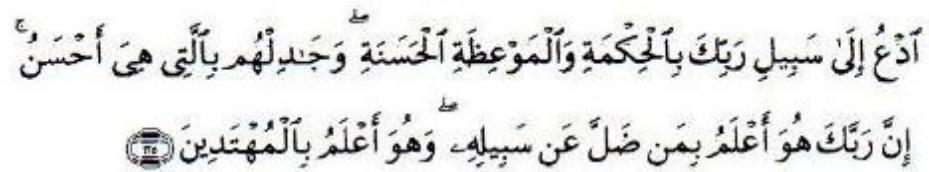 ٱدْعُ إِلَىٰ سَبِيلِ رَبِّكَ بِٱلْحِكْمَةِ وَٱلْمَوْعِظَةِ ٱلْحَسَنَةِ ۖ وَجَـٰدِلْهُم بِٱلَّتِى هِىَ أَحْسَنُ ۚ
إِنَّ رَبَّكَ هُوَ أَعْلَمُ بِمَن ضَلَّ عَن سَبِيلِهِۦ ۖ وَهُوَ أَعْلَمُ بِٱلْمُهْتَدِينَ ١٢٥